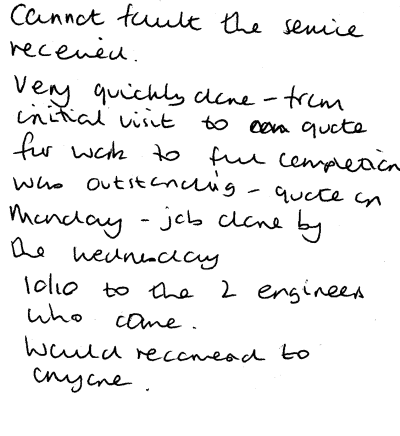 Cannot fault the service
received.
Very quickly done - from
initial visit to quote
for work to full completion
was outstanding - quote on
Monday - job done by
the Wednesday
10/10 to the 2 engineers
who came.
Would recomend to
anyone.